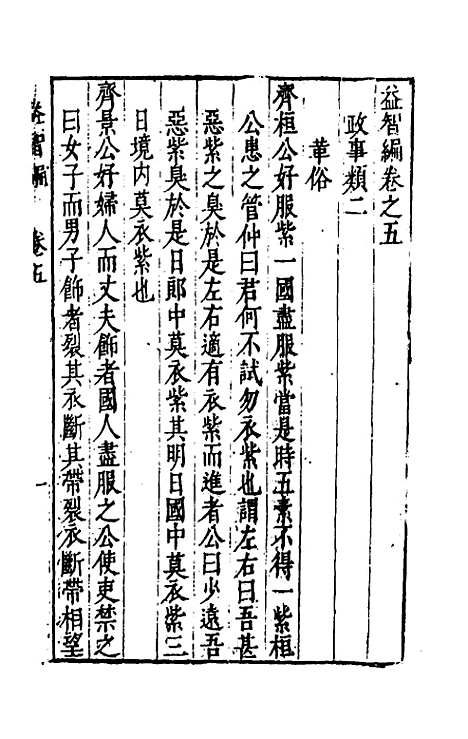 益智編卷之五
政事類二
革俗
齊桓公好服紫一國盡服紫當是時五素不得一紫桓
公患之管仲曰君何不試勿衣紫也謂左右曰吾甚
惡紫之臭於是左右適有衣紫而進者公曰少遠吾
惡紫臭於是日郎中莫衣紫其明日國中莫衣紫三
日境內莫衣紫也
齊景公好婦人而丈夫飾者國人盡服之公使吏禁之
曰女子而男子飾者裂其衣斷其帶裂衣斷帶相望
益智編 卷五 一